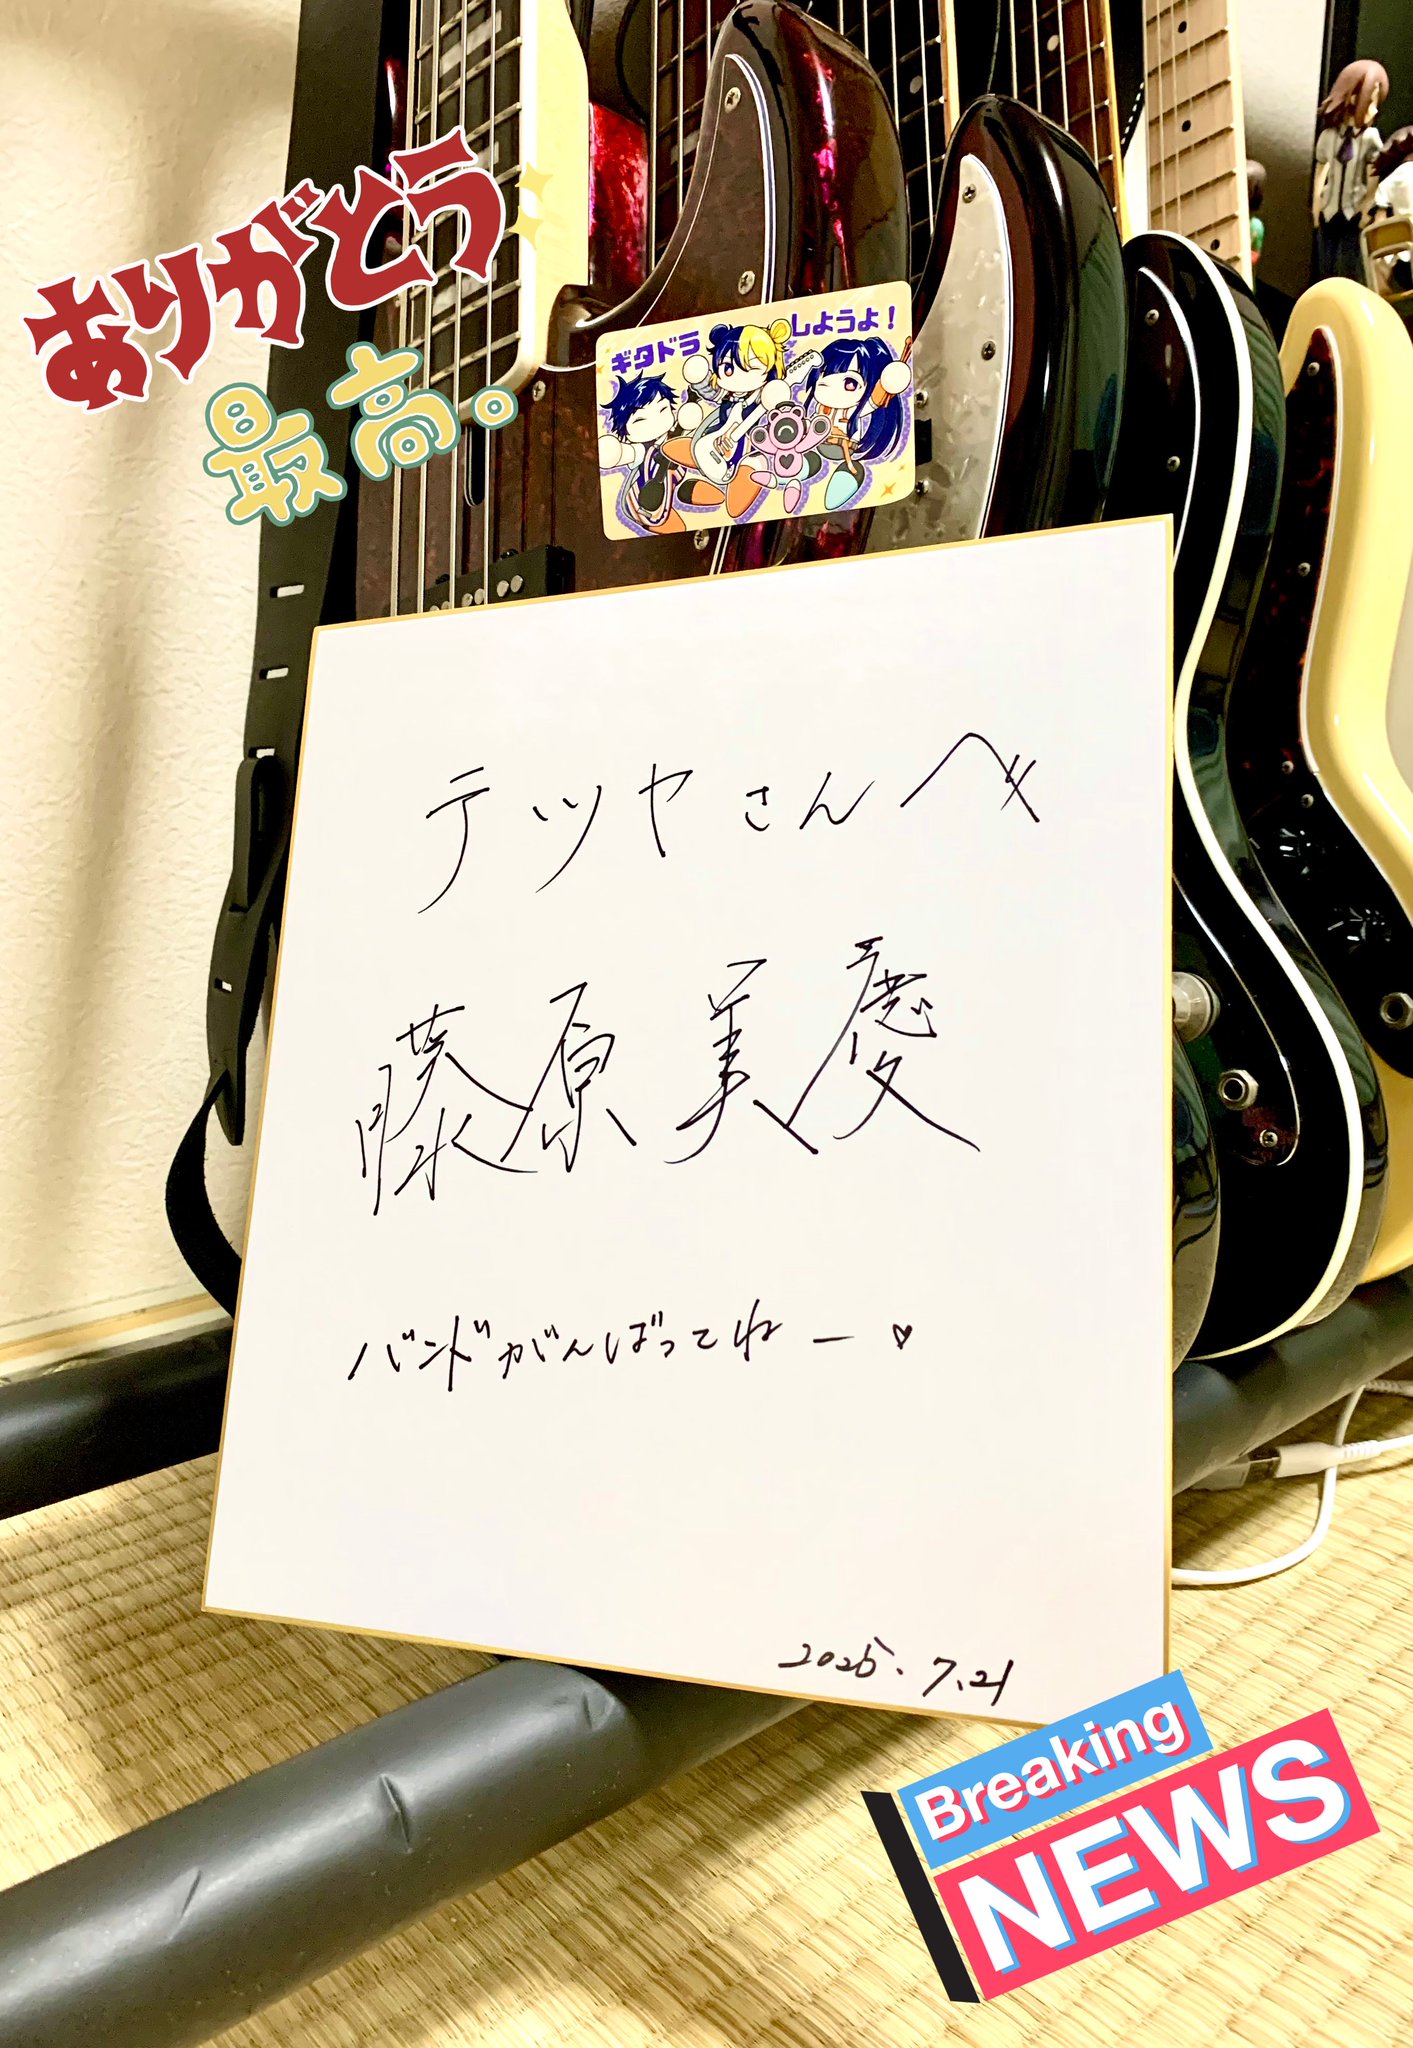 ありがとう
最高。
ギタドラ しようよ！
テツヤさんへ
藤原美慶
バンドがんばってねー♥
2025.7.21
Breaking
NEWS